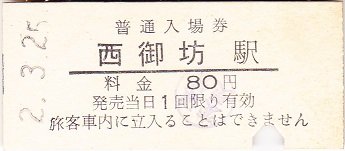 普通入場券
西御坊駅
料金 80円
発売当日1回限り有効
旅客車内に立入ることはできません
2.3.25